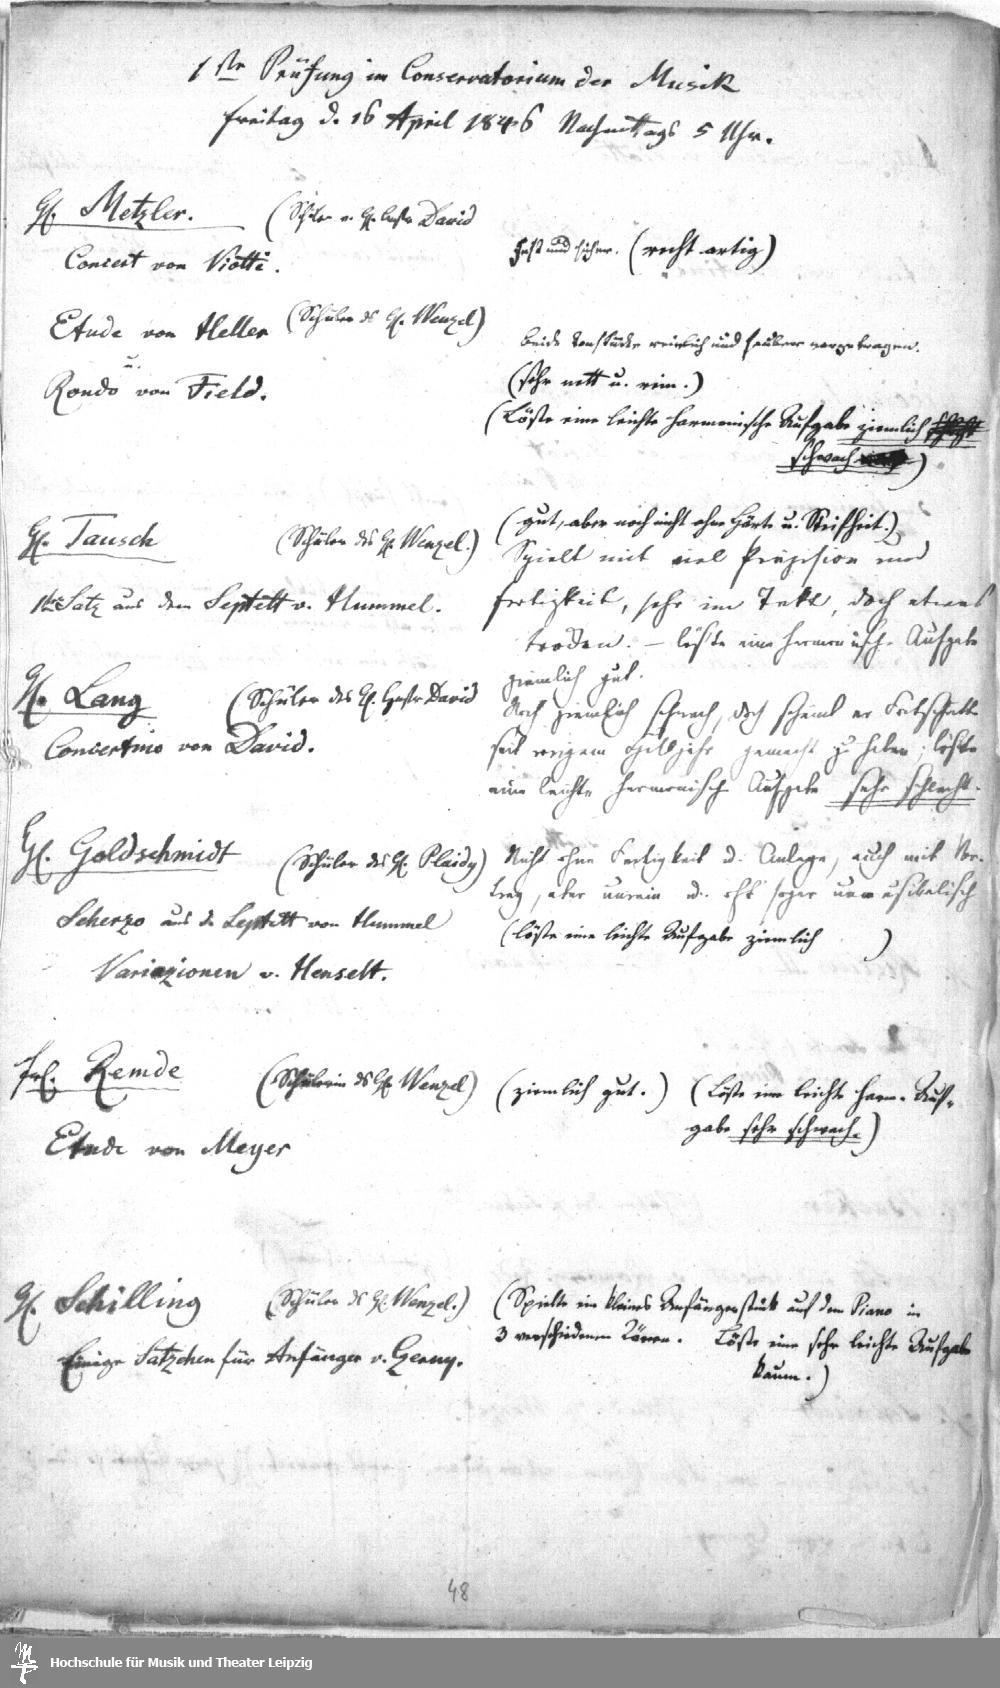 1ste Prüfung im Conservatorium der Musik
Freitag d. 16 April 1846 Nachmittags 5 Uhr.
H. Metzler. (Schüler v. H. David
Concert von Viotti.
fest und sicher. (recht artig)
Etude von Heller (Schüler des H. Wenzel)
u.
Rondo von Field.
beide Tonstücke reinlich und sauber vorgetragen.
(sehr nett u. rein.)
(Löste eine leichte harmonische Aufgabe ziemlich
schwach)
H. Tausch (Schüler des H. Wenzel.)
1ter Satz aus dem Septett v. Hummel.
(gut, aber noch nicht ohne Härte u. Steifheit.)
Spielt mit viel Präzision und
Fertigkeit, sehr im Takt, doch etwas
trocken. – löste eine harmonische Aufgabe
ziemlich gut.
H. Lang (Schüler des H. David
Concertino von David.
Noch ziemlich schwach, doch scheint er Fortschritte
seit vorigem Halbjahr gemacht zu haben; löste
eine leichte harmonische Aufgabe sehr schlecht.
H. Goldschmidt (Schüler des H. Plaidy)
Scherzo aus d. Septett von Hummel
Variazionen v. Henselt.
Nicht ohne Fertigkeit u. Anlage, auch mit Vor-
trag, aber unrein u. oft sogar unmusikalisch
(löste eine leichte Aufgabe ziemlich )
Frl. Remde (Schülerin des H. Wenzel)
Etude von Meyer
(ziemlich gut.) (Löste eine leichte harm. Auf-
gabe sehr schwach.)
H. Schilling (Schüler des H. Wenzel.)
Einige Sätzchen für Anfänger v. Czerny.
(Spielte ein kleines Anfängerstück auf dem Piano in
3 verschiedenen Löste eine sehr leichte Aufgabe
kaum.)
48
Hochschule für Musik und Theater Leipzig